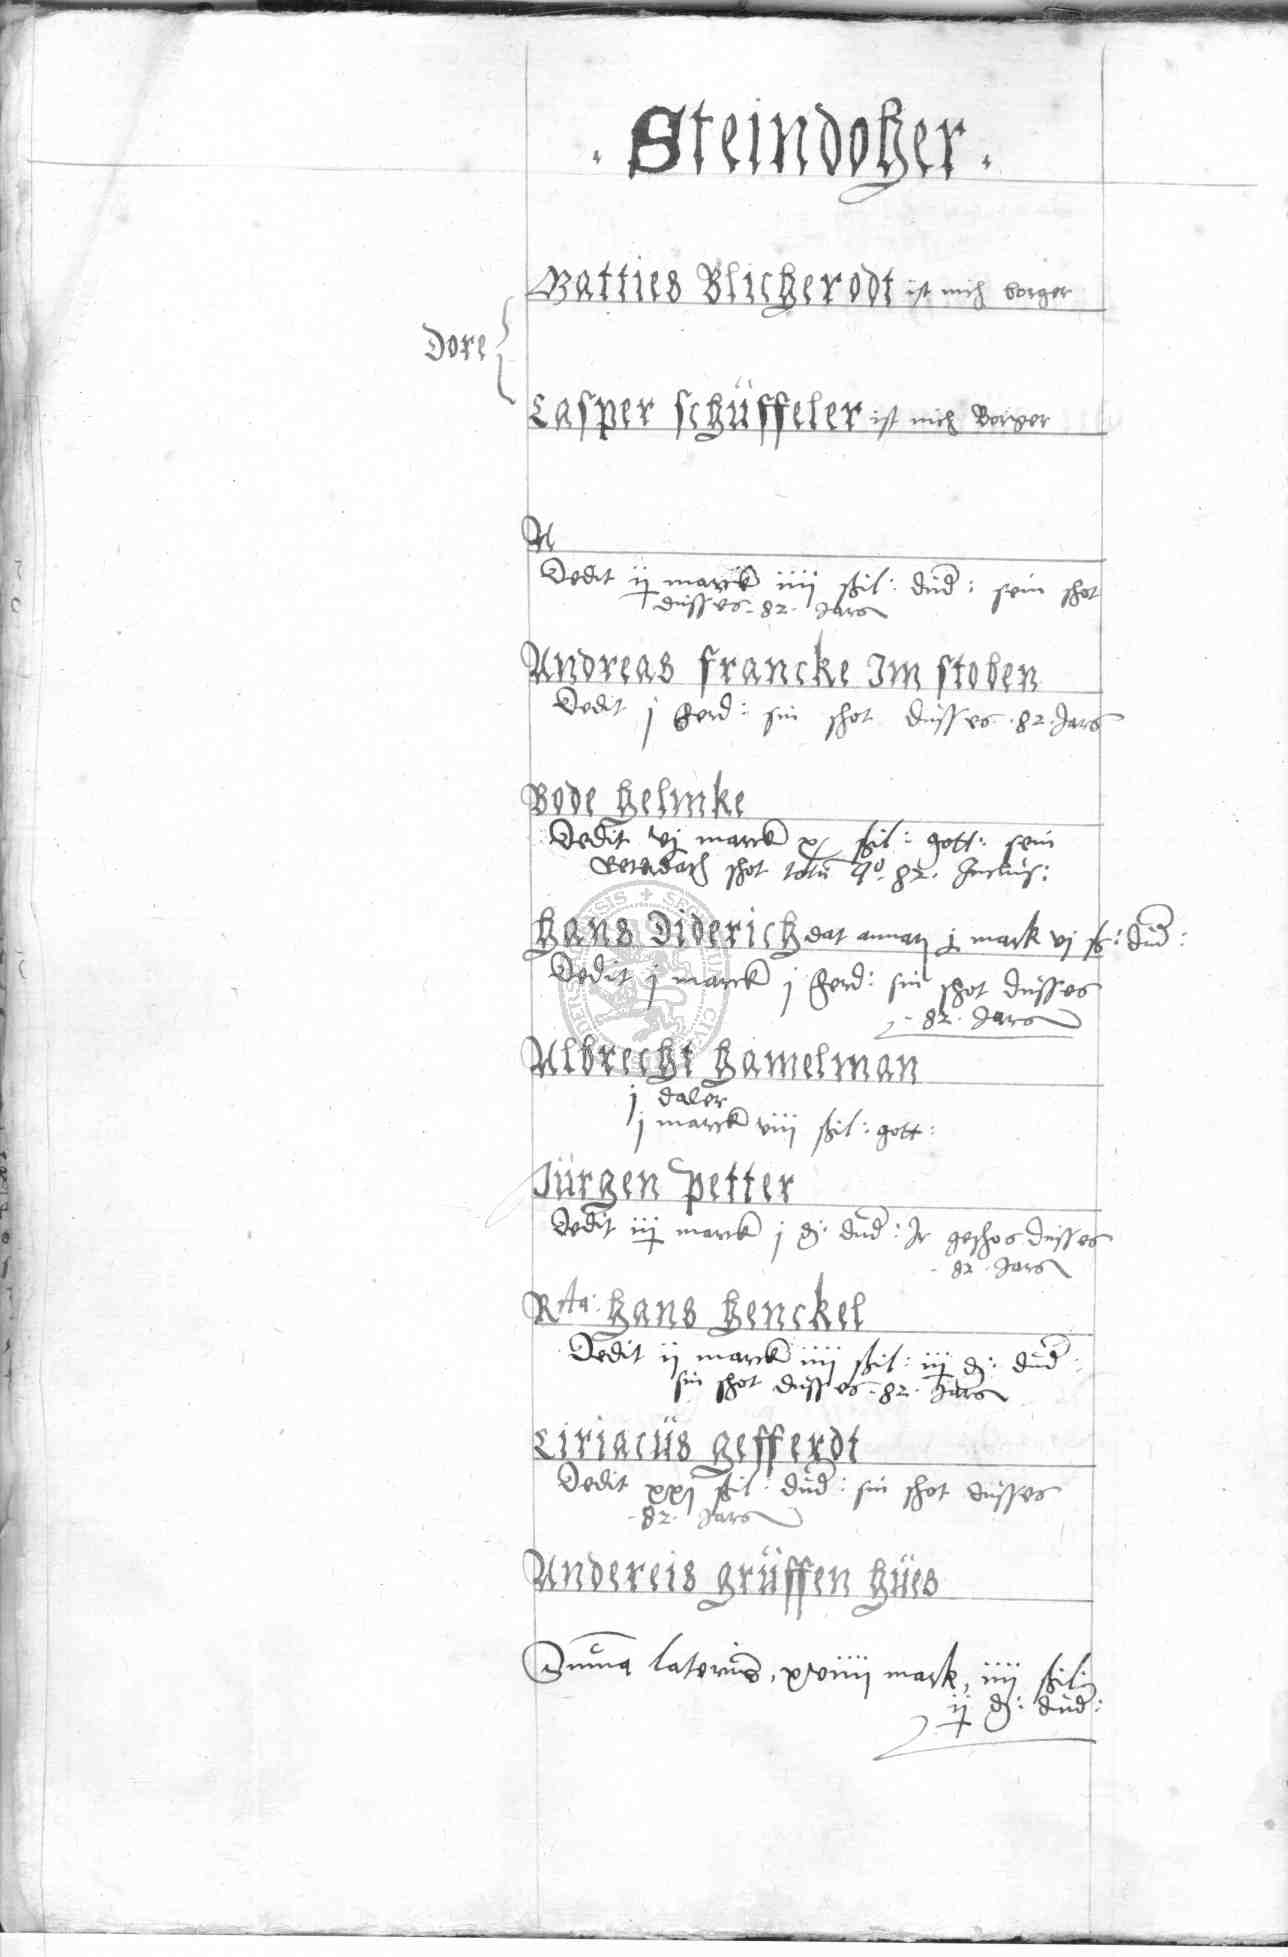 . Steindoher .
Matties Blicherodt ist nich borger
Dore
Casper schüffeler ist nich Borger
A
Dedit ij marck iiij ßil: dud: sein shot
dusses .82. Jars
Andreas francke Im stoben
Dedit j ferd: sin shot dusses .82. Jars
Bode helmke
Dedit vj marck x ßil: gott: sein
shot totu Ao. 82.
Hans Diderich dat j mark vj ß: dud:
Dedit j marck j ferd: sin shot dusses
.82. Jars
Albrecht hamelman
j daler
j marck viij ßil: gott:
Jürgen petter
Dedit iij marck j d: dud: Ir geshos dusses
.82. Jars
Hans henckel
Dedit ij marck iiij ßil: iij d: dud:
sin shot dusses .82. Jars
Ciriacüs gefferdt
Dedit xxj ßil: dud: sin shot dusses
.82. Jars
Andereis grüffen hües
Suma lateris, xviiij mark, iiij ßil
ij d: dud: